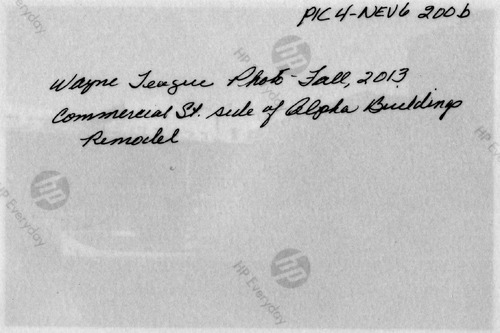 PIC 4-NEV6 200b
Wayne League Photo - Fall, 2013
Commercial St. side of Alpha Buildings
Remodel
HP Everyday
hp
HP Everyday
hp
HP Everyday
hp
HP Everyday